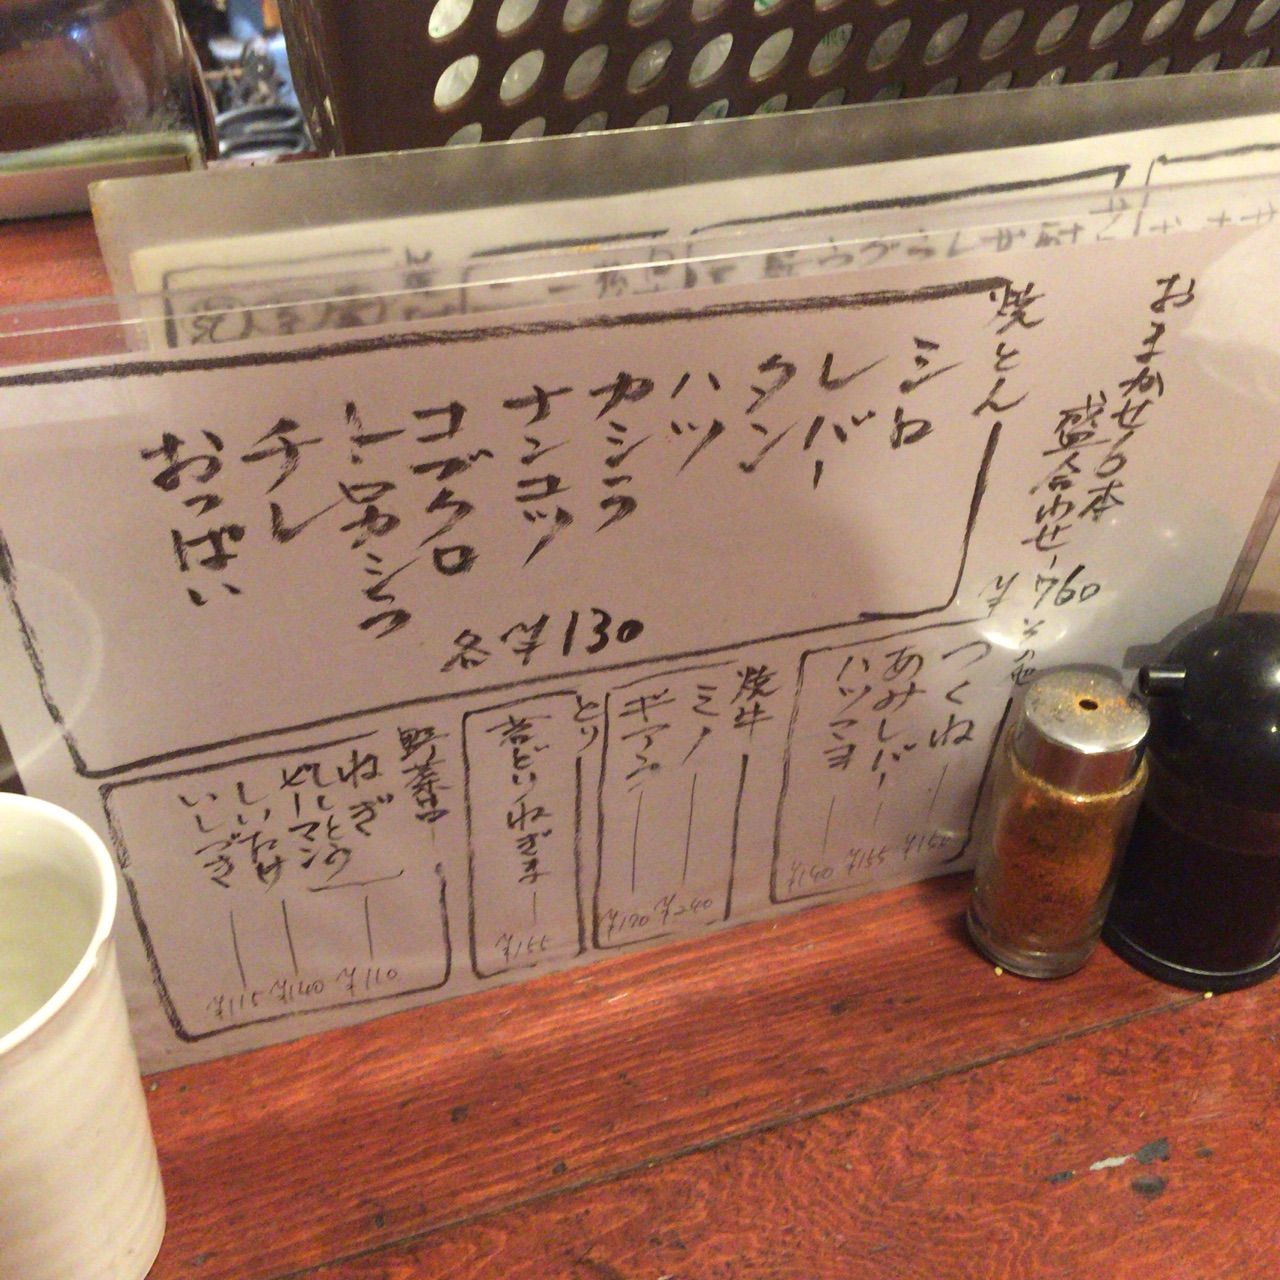 おまかせ6本
盛合わせ-¥760
焼とん
シロ
レバー
タン
ハツ
カシラ
ナンコツ
コブクロ
トロカシラ
チレ
おっぱい
各¥130
その他
つくね
あみレバー
ハツマヨ
¥155
¥140
焼牛
ミノ
ギアラ
¥240
¥170
とり
¥155
野菜串
ねぎ
ししとう
ピーマン
しいたけ
いしづき
¥110
¥140
¥115